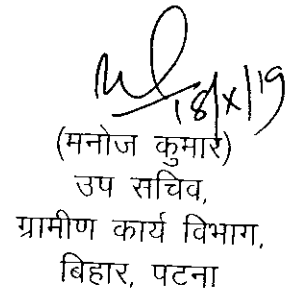 18/X/19
(मनोज कुमार)
उप सचिव,
ग्रामीण कार्य विभाग,
बिहार, पटना